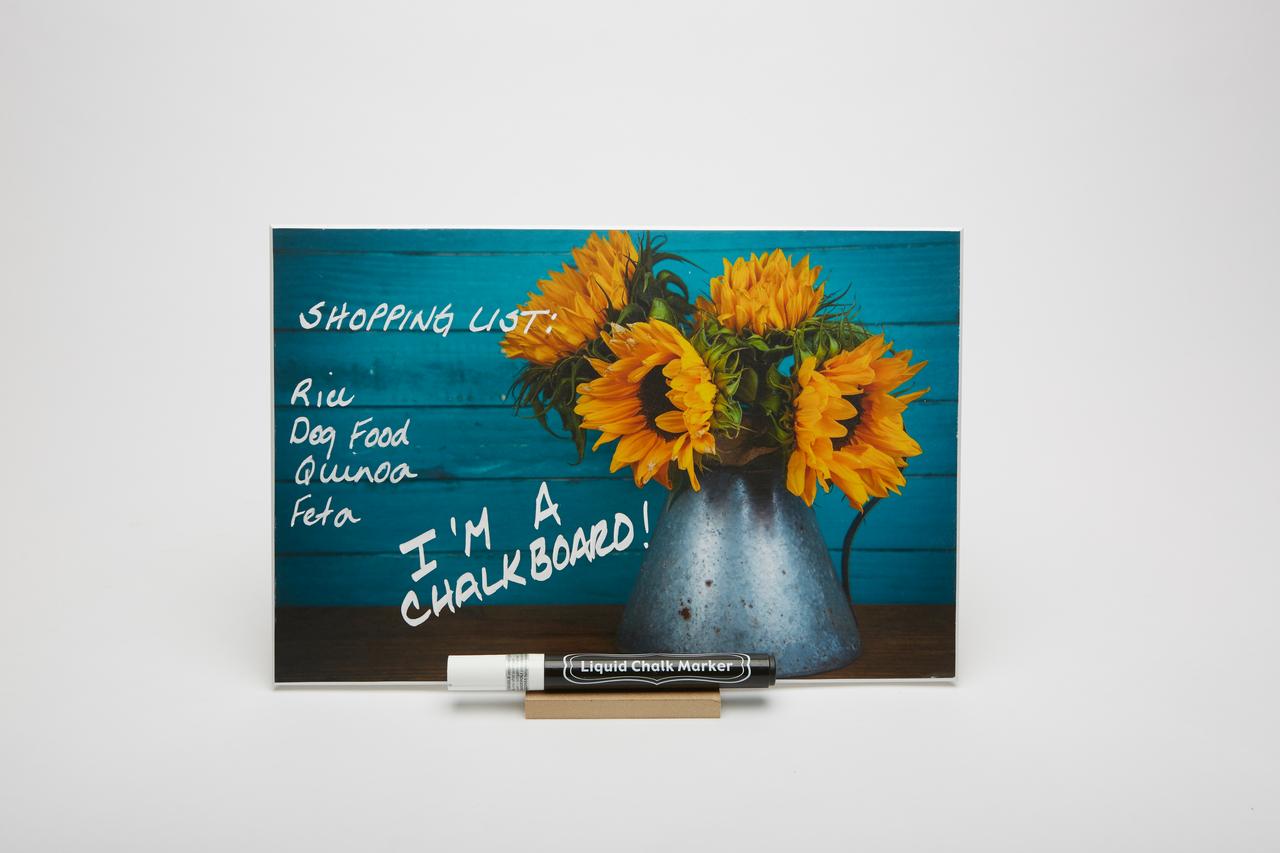 SHOPPING LIST:
Rice
Dog Food
Quinoa
Feta
I'M A
CHALKBOARD!
Liquid Chalk Marker